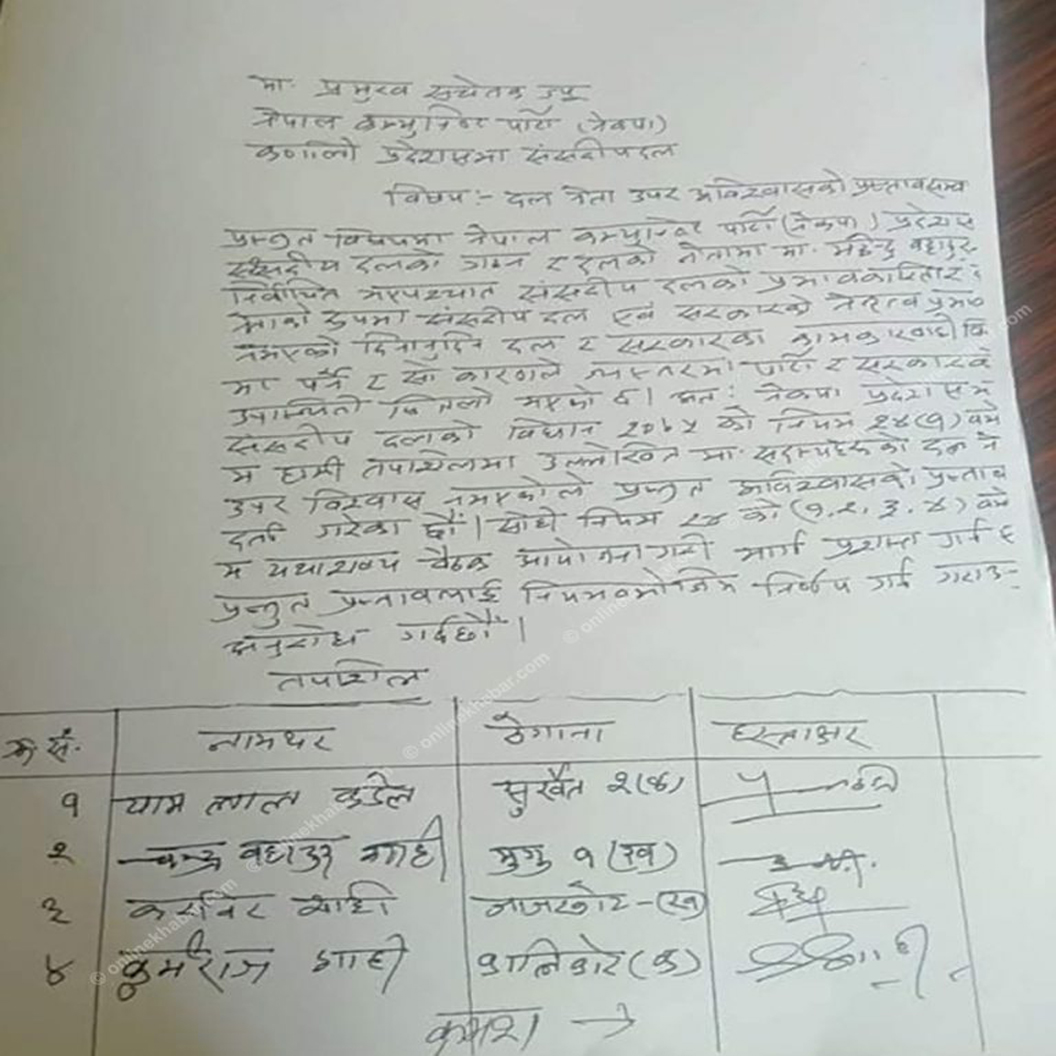 मा. प्रमुख सचेतक ज्यू
नेपाल कम्युनिष्ट पार्टी (नेकपा)
कर्णाली प्रदेशसभा संसदीय दल
विषय:- दल नेता उपर अविश्वासको प्रस्ताव सम्बन्ध
प्रस्तुत विषयमा नेपाल कम्युनिष्ट पार्टी (नेकपा) प्रदेशस
संसदीय दलको गठन र दलको नेतामा मा. महेन्द्र बहादुर
निर्वाचित भएपश्चात संसदीय दलको प्रभावकारिता र
नेताको रुपमा संसदीय दल एवं सरकारको नेतृत्व प्रभाव
नभएको दिनानुदिन दल र सरकारका कामकारवाही वि
मा पर्ने र सो कारणले पार्टी र सरकारको
उपस्थिती भएको छ। अत: नेकपा प्रदेशसभ
संसदीय दलको विधान २०७५ को नियम २४(१) बमो
म हामी तपशिलमा उल्लेखित मा. सदस्यहरुको दल ने
उपर विश्वास नभएकोले प्रस्तुत अविश्वासको प्रस्ताव
दर्ता गरेका छौं। सोही नियम २४ को (१,२,३,४) बमो
म यथाशक्य बैठक आयोजना गरी मार्ग प्रशस्त गर्न र
प्रस्तुत प्रस्तावलाई नियमबमोजिम निर्णय गर्न गराउन
अनुरोध गर्दछौं।
तपशिल
क्र.सं. नामथर ठेगाना हस्ताक्षर
१ याम लाल कंडेल सुर्खेत २(क)
२ चन्द्र बहादुर शाही मुगु १(ख)
३ करविर शाही जाजरकोट-(ख)
४ कुर्मराज शाही कालिकोट(क)
क्रमश: →
© onlinekhabar.com
© onlinekhabar.com
© onlinekhabar.com
© onlinekhabar.com